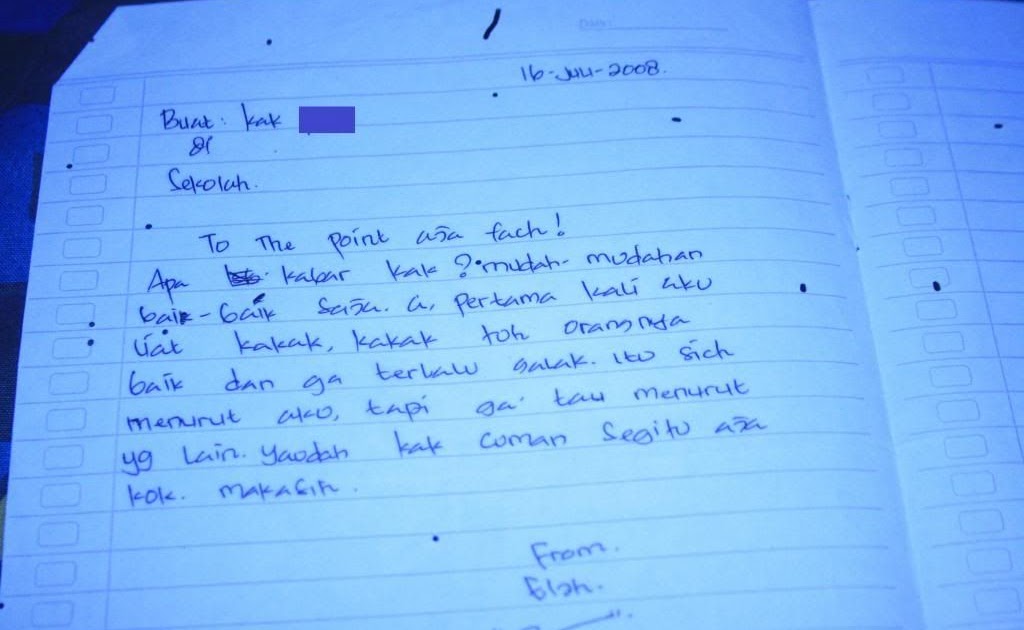 16-Juli-2008.
Buat: kak
di
Sekolah.
To The point aja fach!
Apa kabar kak? mudah-mudahan
baik-baik saja. a, pertama kali aku
liat kakak, kakak toh orangnya
baik dan ga terlalu galak. itu sich
menurut aku, tapi ga' tau menurut
yg Lain. Yaodah kak cuman Segitu aja
kok. makasih.
From.